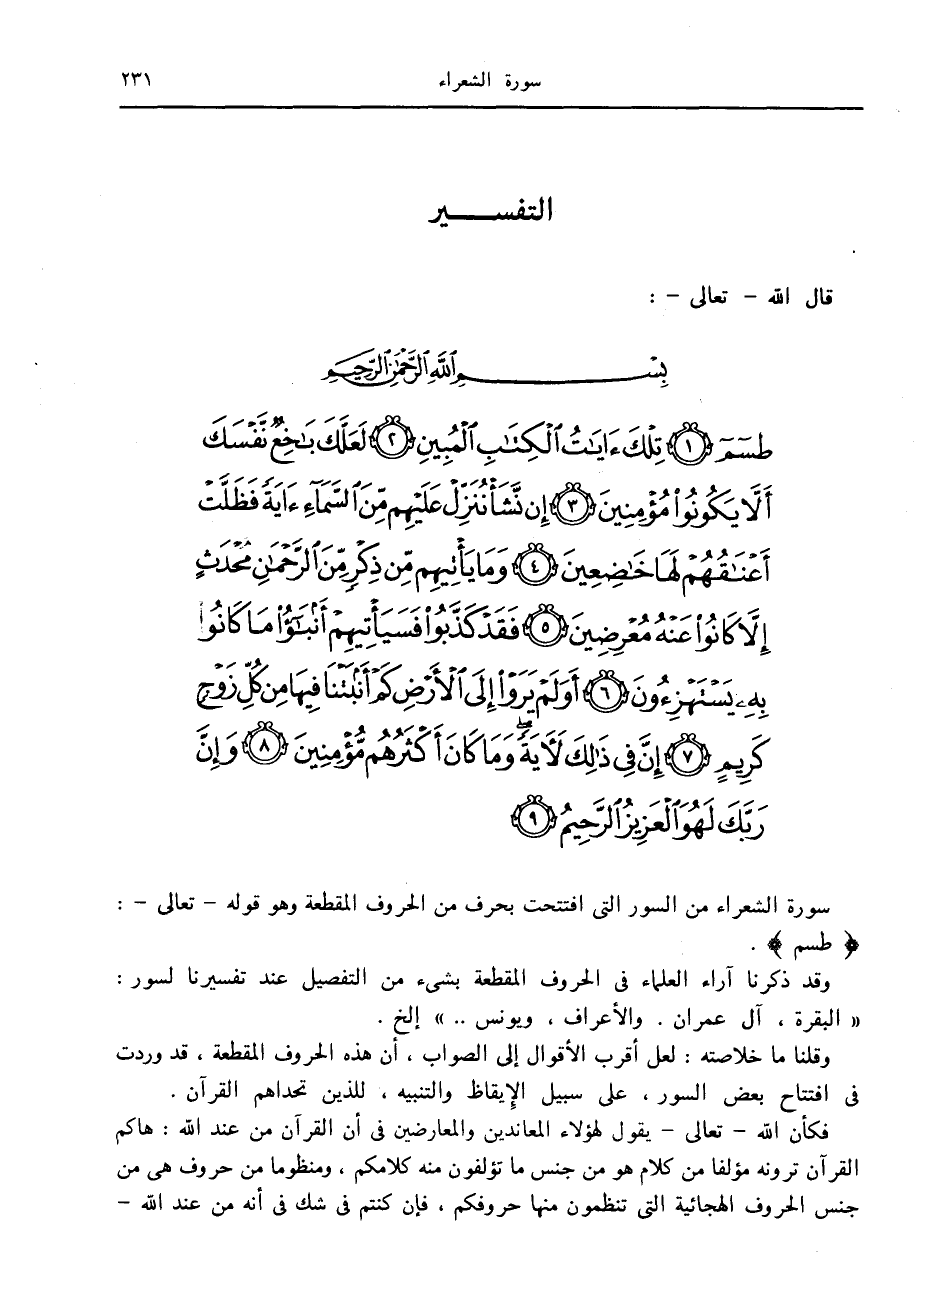 سورة الشعراء ٢٣١
التفســـــير
قال الله – تعالى – :
بِسْـــــــمِ ٱللَّهِ ٱلرَّحْمَٰنِ ٱلرَّحِيمِ
طسٓمٓ ١ تِلْكَ ءَايَٰتُ ٱلْكِتَٰبِ ٱلْمُبِينِ ٢ لَعَلَّكَ بَٰخِعٌ نَّفْسَكَ
أَلَّا يَكُونُوا۟ مُؤْمِنِينَ ٣ إِن نَّشَأْ نُنَزِّلْ عَلَيْهِم مِّنَ ٱلسَّمَآءِ ءَايَةً فَظَلَّتْ
أَعْنَٰقُهُمْ لَهَا خَٰضِعِينَ ٤ وَمَا يَأْتِيهِم مِّن ذِكْرٍ مِّنَ ٱلرَّحْمَٰنِ مُحْدَثٍ
إِلَّا كَانُوا۟ عَنْهُ مُعْرِضِينَ ٥ فَقَدْ كَذَّبُوا۟ فَسَيَأْتِيهِمْ أَنۢبَٰٓؤُا۟ مَا كَانُوا۟
بِهِۦ يَسْتَهْزِءُونَ ٦ أَوَلَمْ يَرَوْا۟ إِلَى ٱلْأَرْضِ كَمْ أَنۢبَتْنَا فِيهَا مِن كُلِّ زَوْجٍ
كَرِيمٍ ٧ إِنَّ فِى ذَٰلِكَ لَءَايَةً ۖ وَمَا كَانَ أَكْثَرُهُم مُّؤْمِنِينَ ٨ وَإِنَّ
رَبَّكَ لَهُوَ ٱلْعَزِيزُ ٱلرَّحِيمُ ٩
سورة الشعراء من السور التى افتتحت بحرف من الحروف المقطعة وهو قوله – تعالى – :
﴿ طسم ﴾ .
وقد ذكرنا آراء العلماء فى الحروف المقطعة بشىء من التفصيل عند تفسيرنا لسور :
« البقرة ، آل عمران . والأعراف ، ويونس .. » إلخ .
وقلنا ما خلاصته : لعل أقرب الأقوال إلى الصواب ، أن هذه الحروف المقطعة ، قد وردت
فى افتتاح بعض السور ، على سبيل الإيقاظ والتنبيه ، للذين تحداهم القرآن .
فكأن الله – تعالى – يقول لهؤلاء المعاندين والمعارضين فى أن القرآن من عند الله : هاكم
القرآن ترونه مؤلفا من كلام هو من جنس ما تؤلفون منه كلامكم ، ومنظوما من حروف هى من
جنس الحروف الهجائية التى تنظمون منها حروفكم ، فإن كنتم فى شك فى أنه من عند الله –